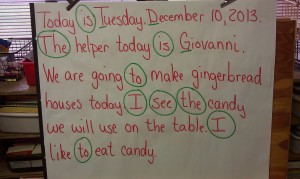 Today is Tuesday. December 10, 2013.
The helper today is Giovanni.
We are going to make gingerbread
houses today. I see the candy
we will use on the table. I
like to eat candy.